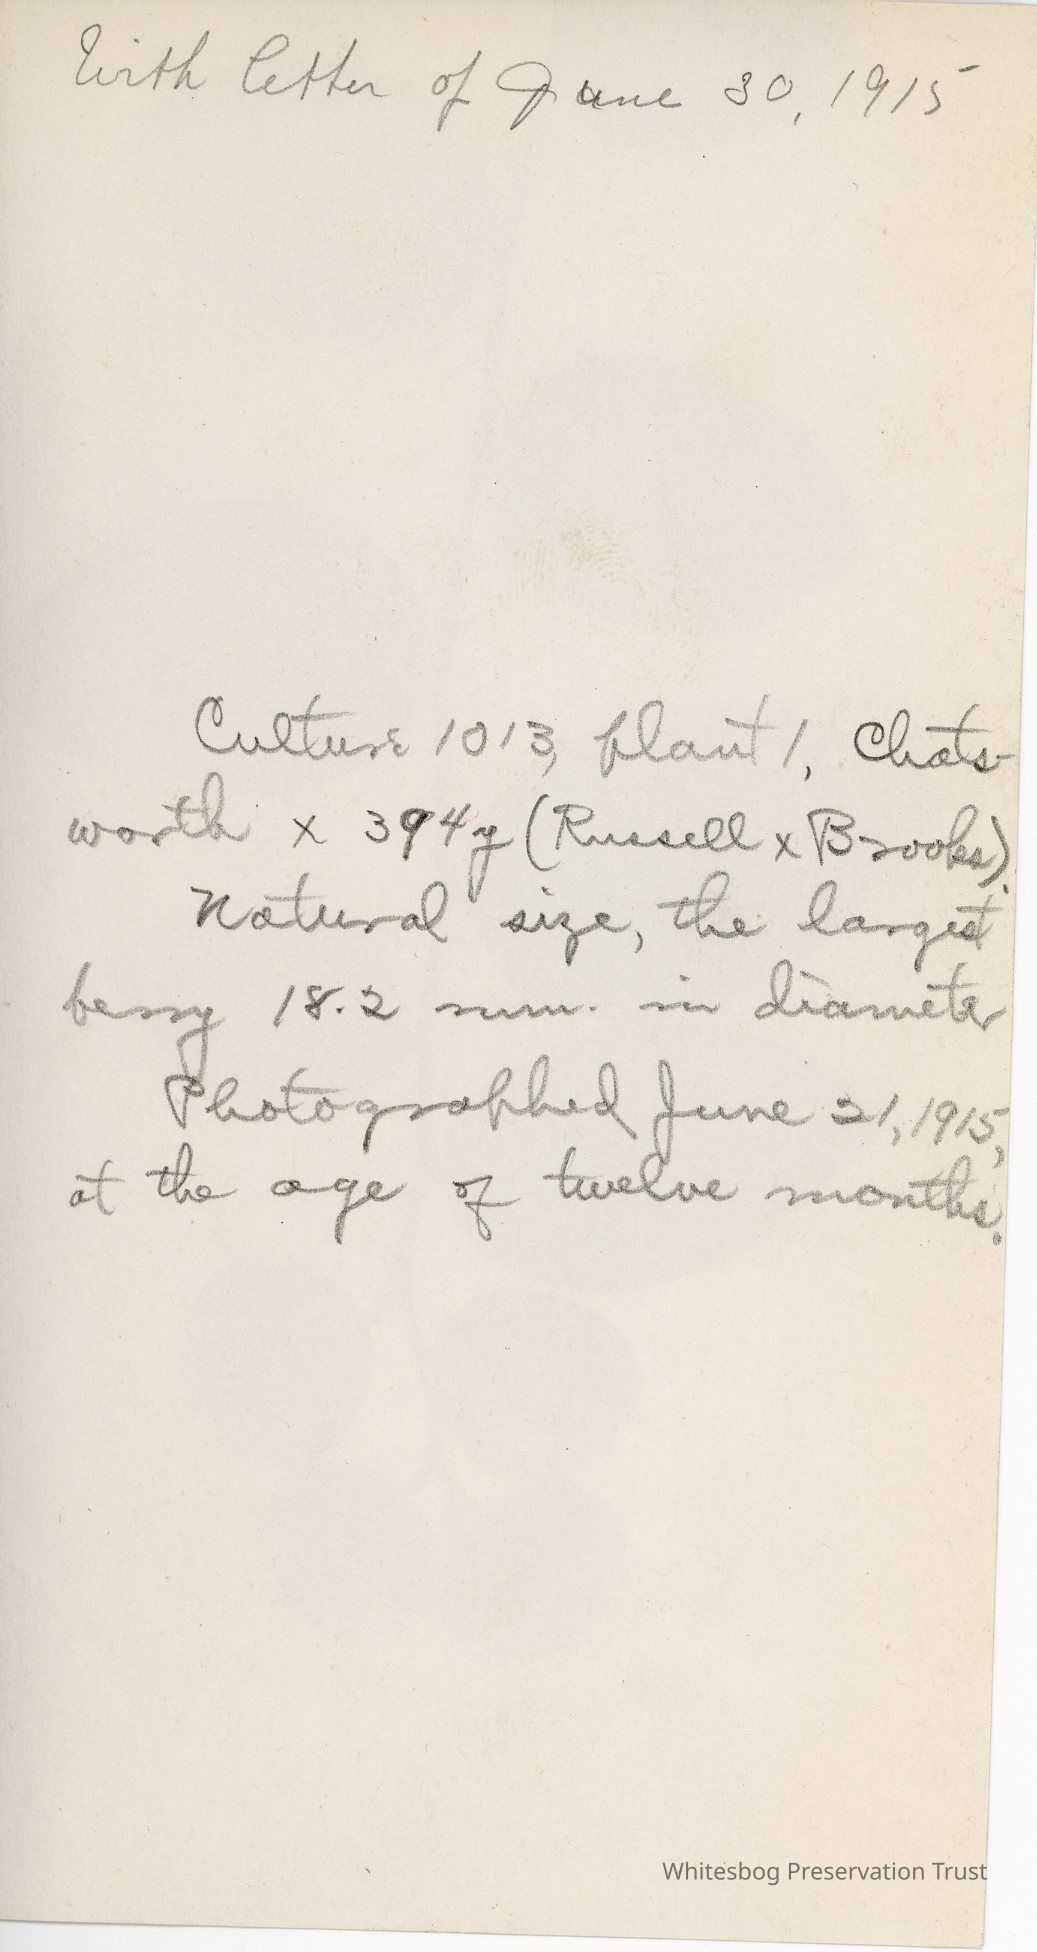 With letter of June 30, 1915
Culture 1013, plant 1, Chats-
worth x 394y (Russell x Brooks).
Natural size, the largest
berry 18.2 mm. in diameter
Photographed June 21, 1915,
at the age of twelve months.
Whitesbog Preservation Trust